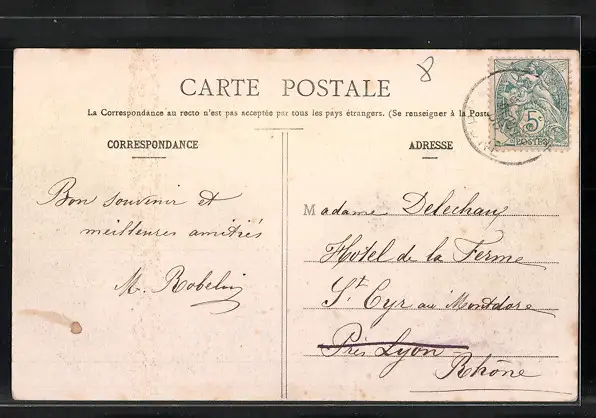 8
CARTE POSTALE
La Correspondance au recto n'est pas acceptée par tous les pays étrangers. (Se renseigner à la Poste
CORRESPONDANCE
Bon souvenir et
meilleures amitiés
M. Robelin
ADRESSE
Madame Delechaux
Hôtel de la Ferme
St Cyr au Montdore
Près Lyon
Rhône
5c
POSTES